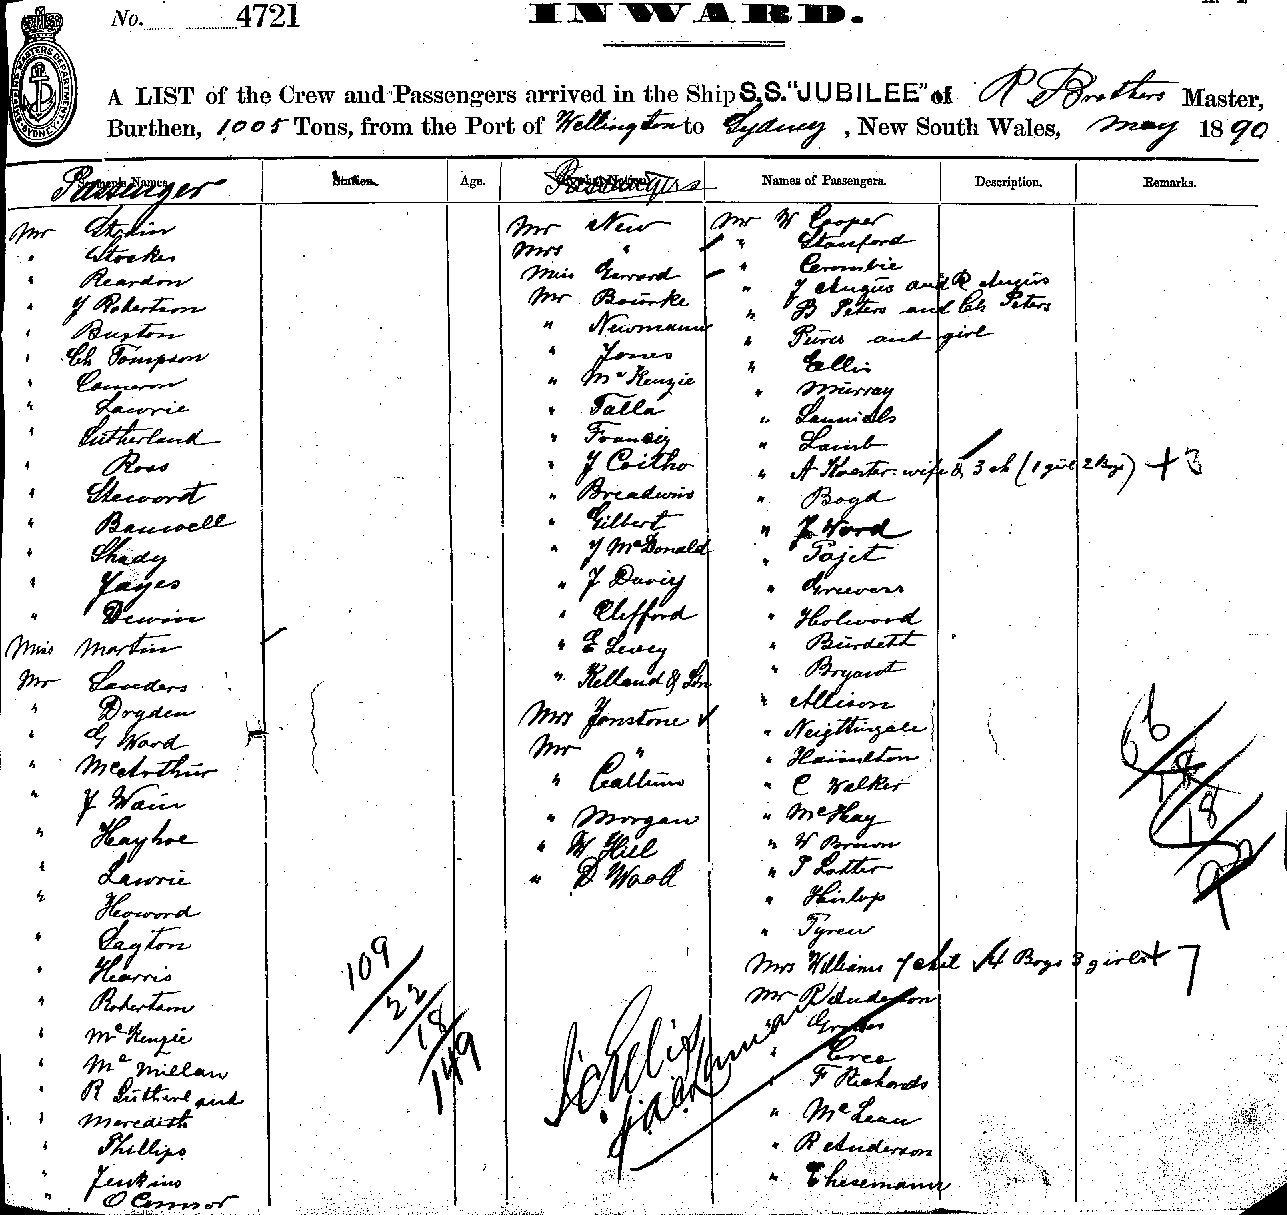 No. 4721
INWARD.
A LIST of the Crew and Passengers arrived in the Ship S.S. "JUBILEE" of R Brothers Master,
Burthen, 1005 Tons, from the Port of Wellington to Sydney, New South Wales, May 1890
Passenger
Station.
Age.
Passengers
Names of Passengers.
Description.
Remarks.
Mr Strain
" Stocks
" Reardon
" J Robertson
" Buxton
" Ch Tompson
" Cameron
" Lawrie
" Sutherland
" Ross
" Steword
" Banwell
" Shady
" Jayes
" Dewin
Miss Martin
Mr Sanders
" Dryden
" G Ward
" McArthur
" J Wain
" Hayhoe
" Lawrie
" Howord
" Layton
" Harris
" Robertson
" McKenzie
" McMillan
" R Sutherland
" Meredith
" Phillips
" Jenkins
" O Connor
109
22
18
149
Mr New
Mrs "
Miss Gerrard
Mr Bourke
" Newmann
" Jones
" McKenzie
" Talla
" Francis
" J Coitho
" Breadwins
" Gilbert
" J McDonald
" J Davis
" Clifford
" E Levey
" Kelland & Son
Mrs Jonstone
Mr "
" Callum
" Morgan
" W Hill
" D Wood
Mr W Cooper
" Stanford
" Crombie
" J Angus and R Angus
" B Peters and Ch Peters
" Purvis and girl
" Ellis
" Murray
" Lamb
" A Koerter wife & 3 ch (1 girl 2 boys) + 3
" Boyd
" J Word
" Pajet
" Greevers
" Holwood
" Burdett
" Bryant
" Allison
" Neigttingale
" Hamilton
" C Walker
" McHay
" W Brown
" T Lotter
" Hislop
" Tyren
Mrs Williams 7 chil 4 Boys 3 girls + 7
Mr R Anderson
" F Richards
" McLean
" R Anderson
" Thesemann
66
18